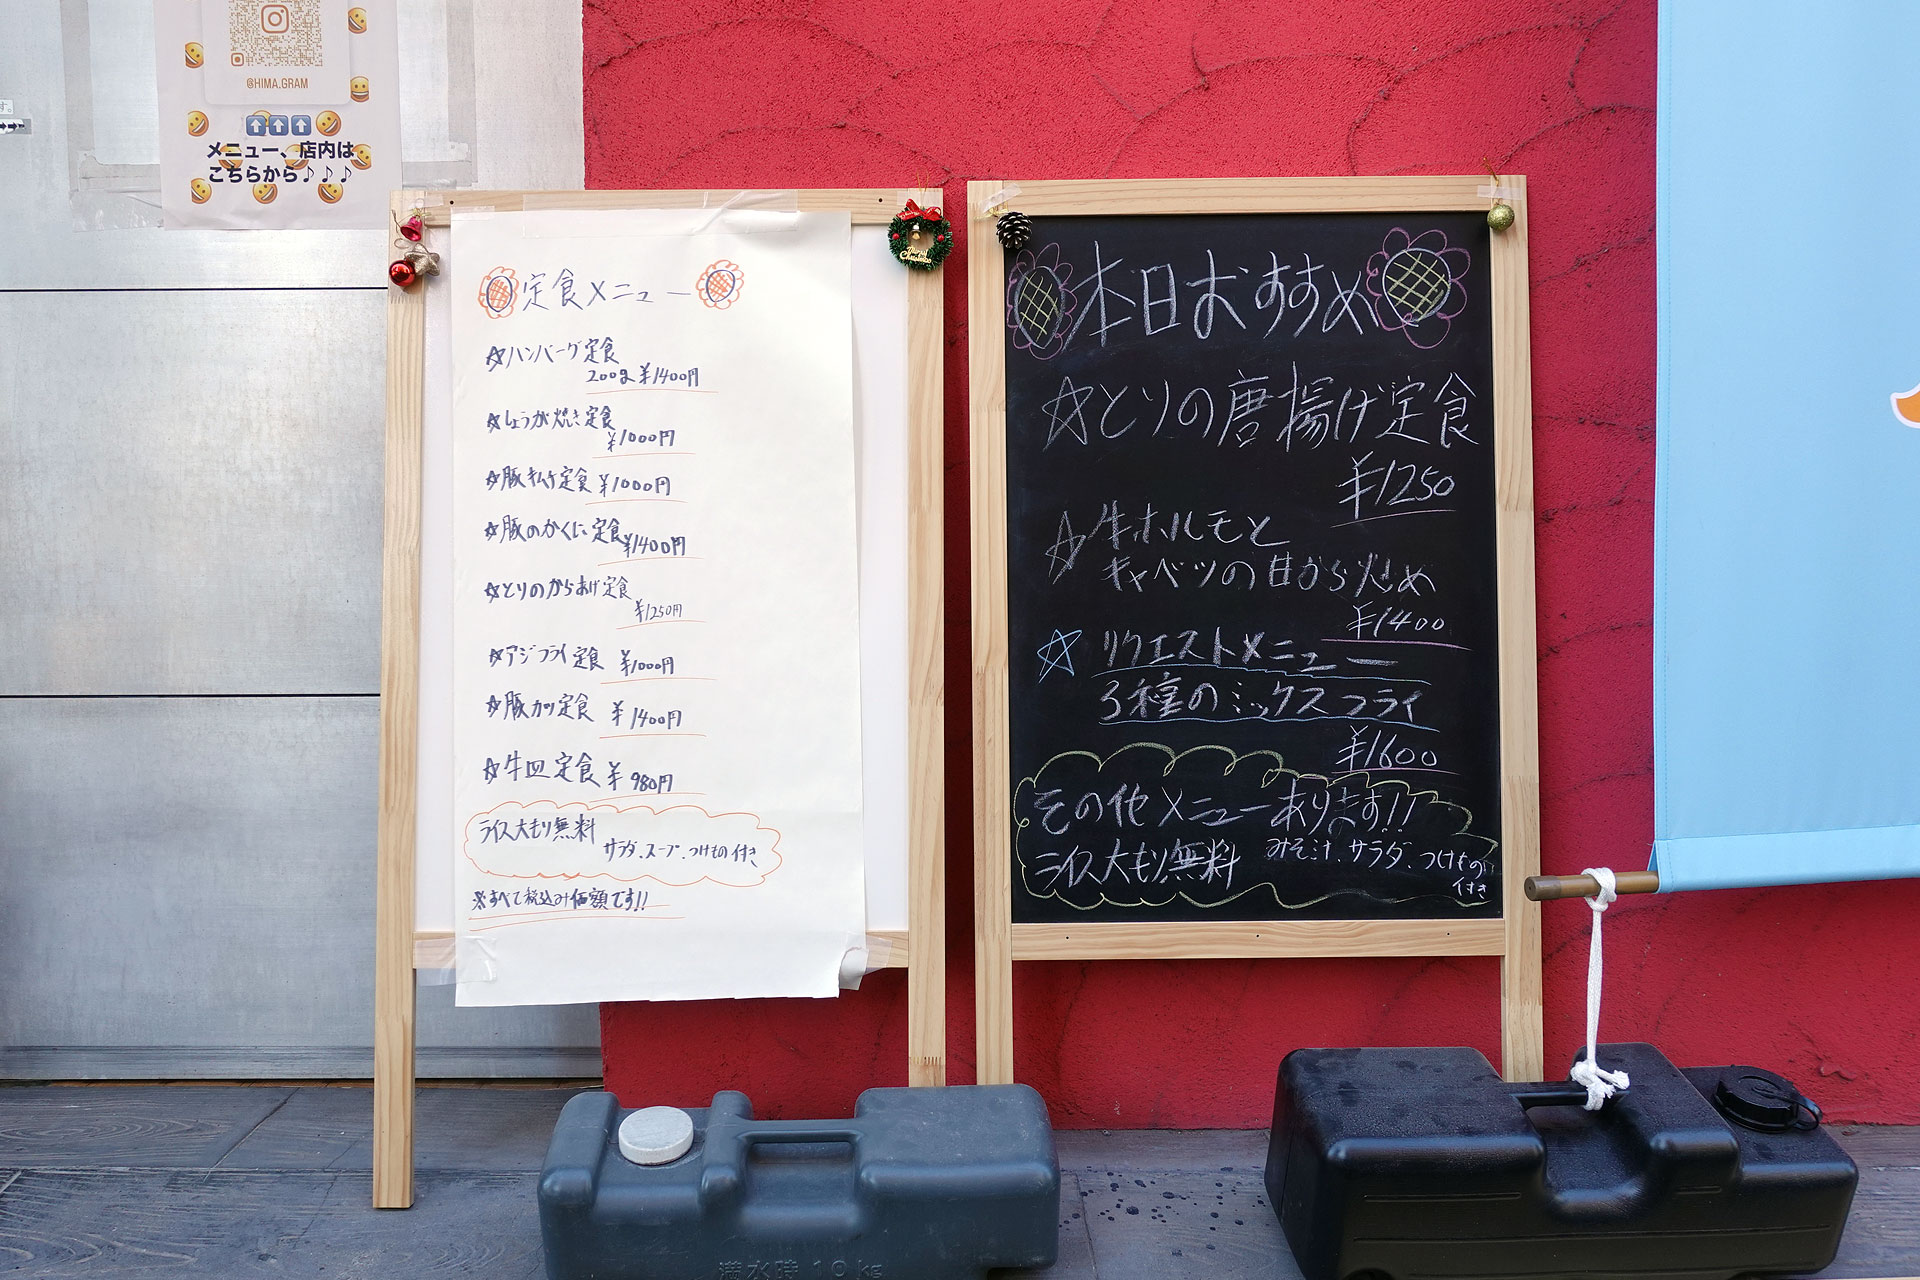 @HIMA.GRAM
メニュー、店内は
こちらから♪♪♪
す。
定食メニュー
☆ハンバーグ定食
200g ¥1400円
☆しょうが焼き定食
¥1000円
☆豚キムチ定食 ¥1000円
☆豚のかくに定食
¥1400円
☆とりのからあげ定食
¥1250円
☆アジフライ定食 ¥1000円
☆豚カツ定食 ¥1400円
☆牛皿定食 ¥980円
ライス大もり無料
サラダ、スープ、つけもの付き
※すべて税込み価額です!!
本日おすすめ
☆とりの唐揚げ定食
¥1250
☆牛ホルモと
キャベツの甘から炒め
¥1400
☆リクエストメニュー
3種のミックスフライ
¥1600
その他メニューあります!!
ライス大もり無料 みそ汁、サラダ、つけもの
付き
Merry Christmas
満水時 10kg